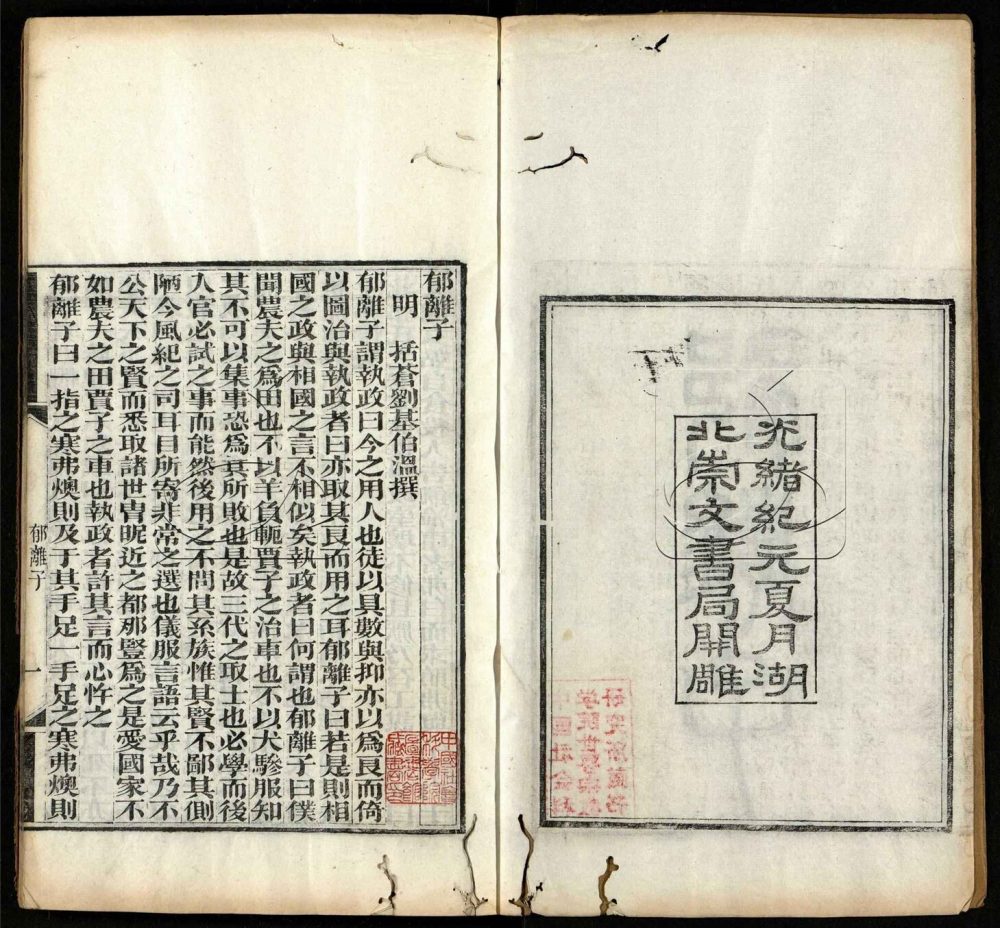 光緒紀元夏月湖
北崇文書局開雕
郁離子
明 括蒼劉基伯溫撰
郁離子謂執政曰今之用人也徒以具數與抑亦以為良而倚
以圖治與執政者曰亦取其良而用之耳郁離子曰若是則相
國之政與相國之言不相似矣執政者曰何謂也郁離子曰僕
聞農夫之為田也不以羊負軛賈子之治車也不以犬驂服知
其不可以集事恐為其所敗也是故三代之取士也必學而後
入官必試之事而能然後用之不問其系族惟其賢不鄙其側
陋今風紀之司耳目所寄非常之選也儀服言語云乎哉乃不
公天下之賢而悉取諸世胄昵近之都那豎為之是愛國家不
如農夫之田賈子之車也執政者許其言而心忤之
郁離子曰一指之寒弗燠則及于其手足一手足之寒弗燠則
郁離子
一